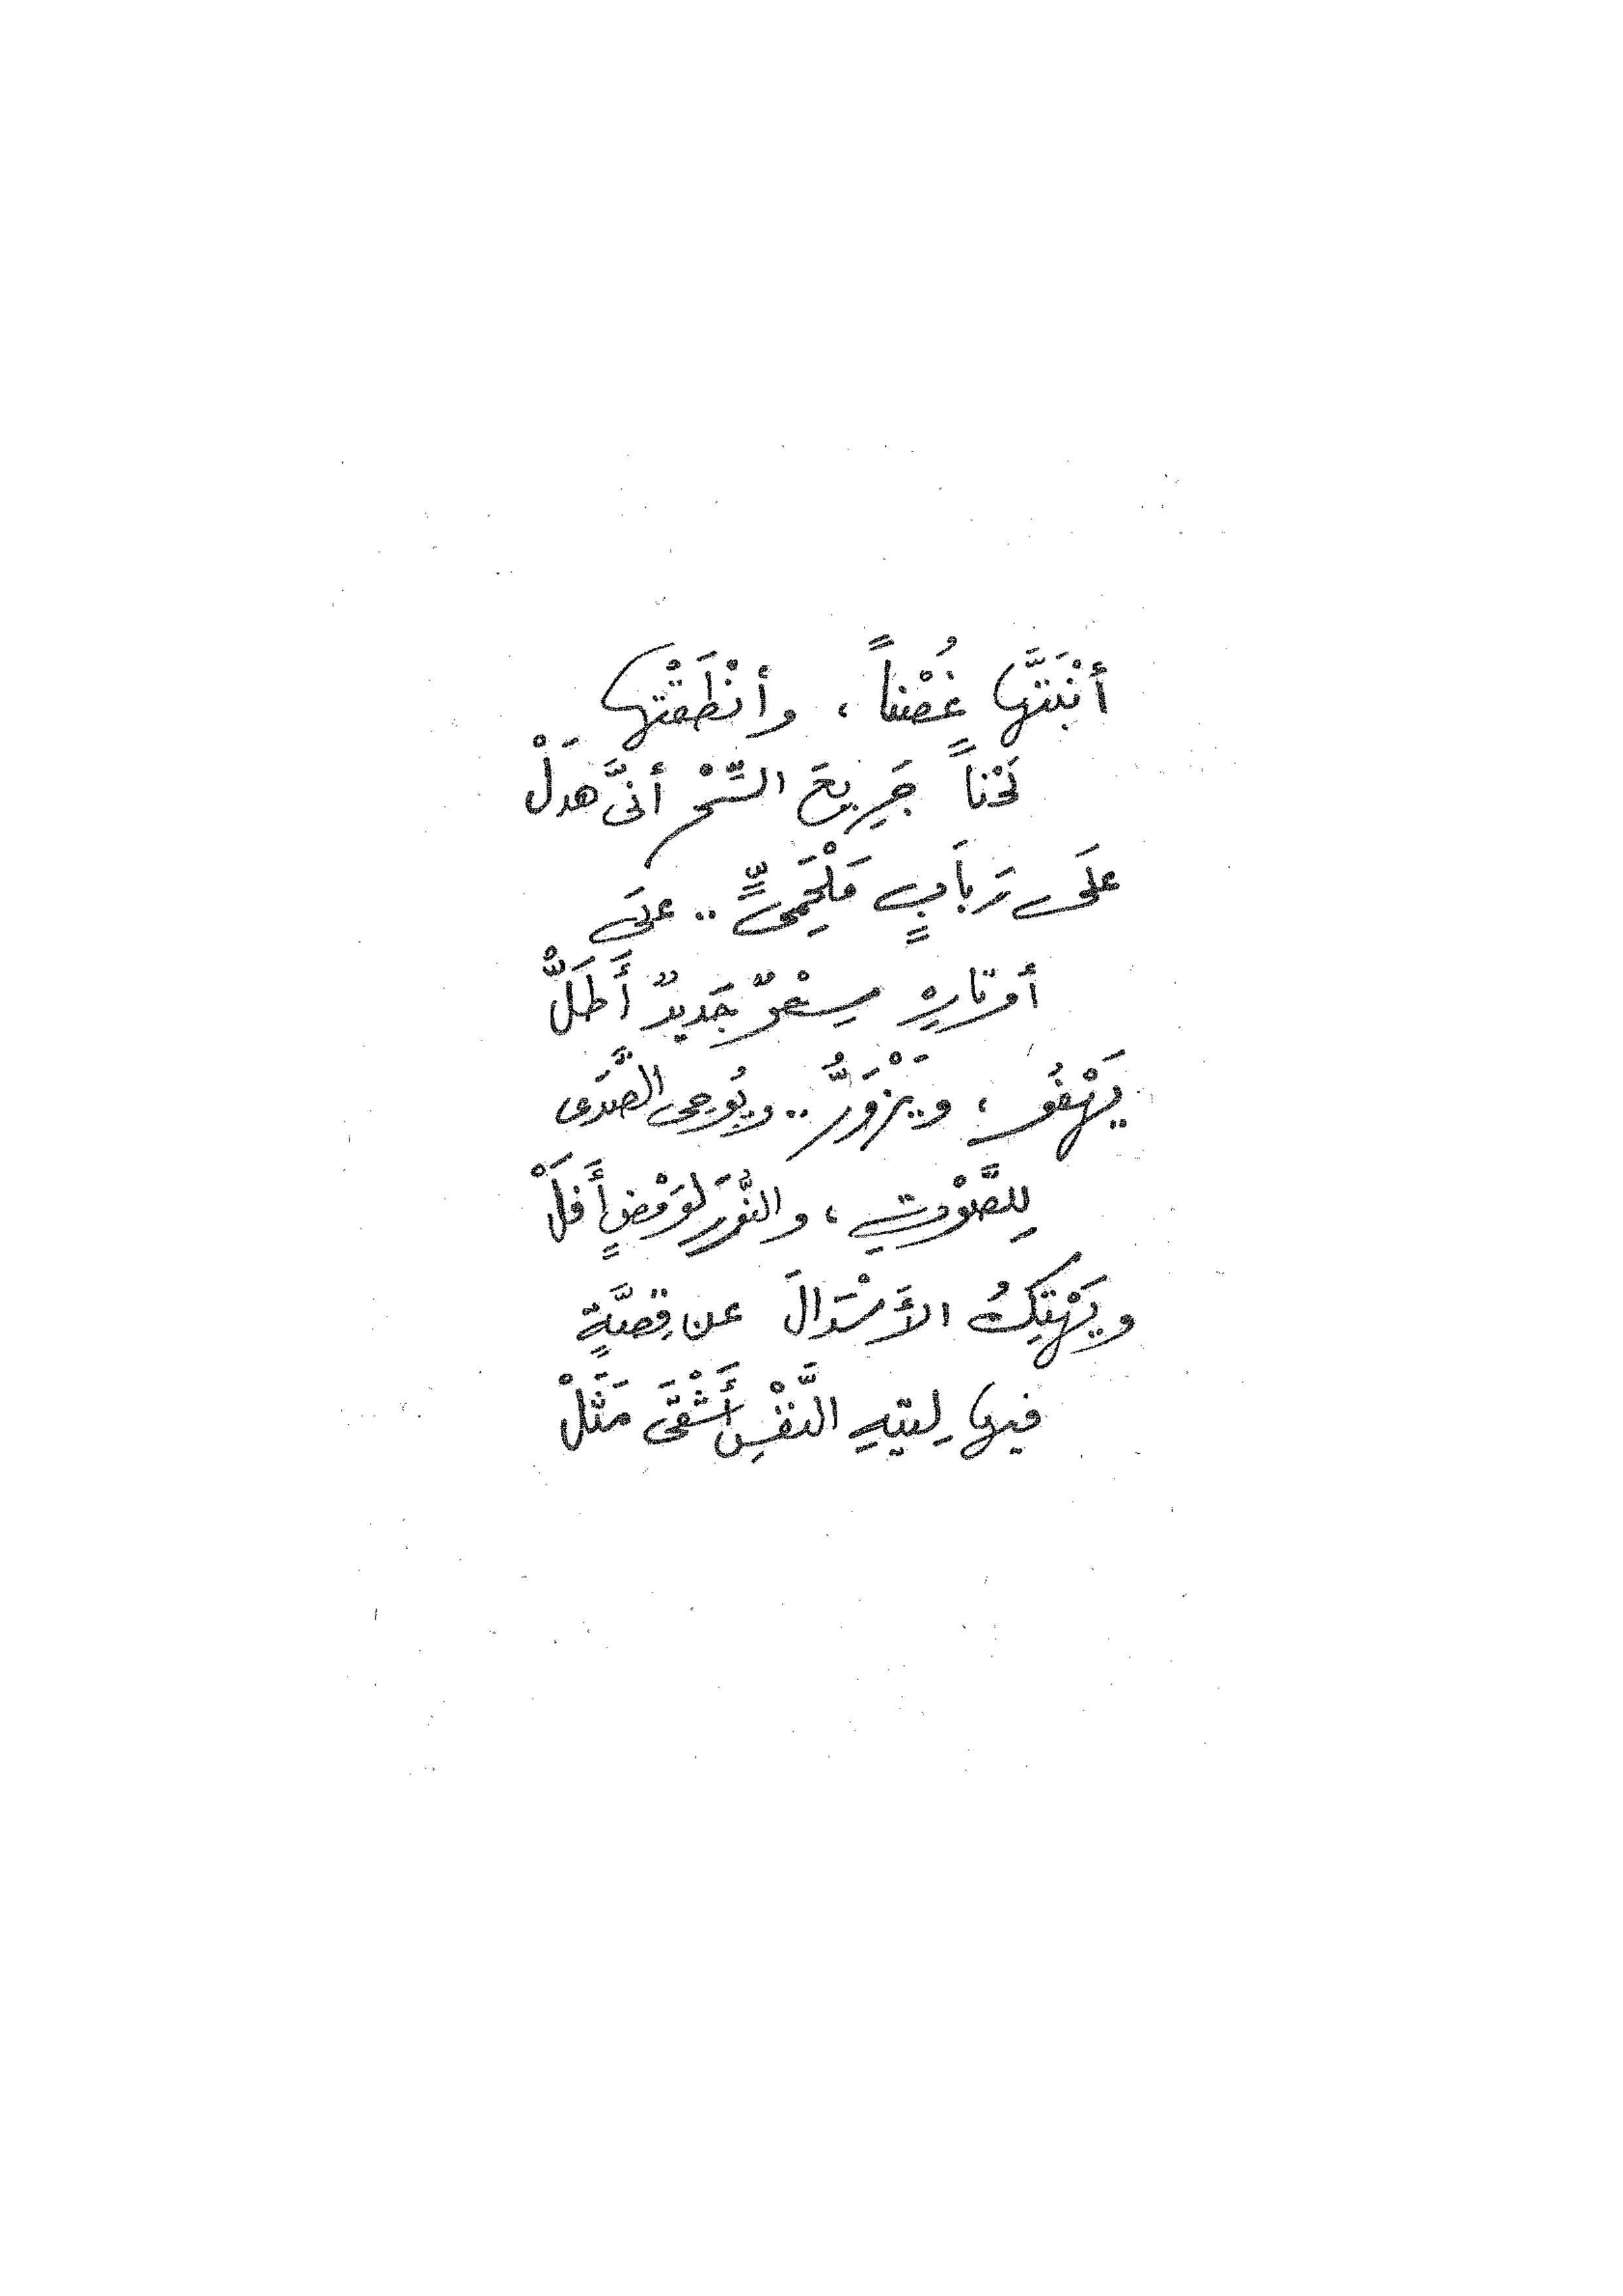 أنْبَتَّها غُصْناً ، وأنْطَقْتها
لَحْناً جَرِيحَ السِّحْرِ أنَّى هدَلْ
علَى رَبابٍ مَلْحَمِىٍّ .. علَى
أوتارِهِ سِحْرٌ جَديدٌ أَطَلّْ
يَهْفُو ، ويَزْوَرُّ .. ويُوحِى الصَّدَى
لِلصَّوْتِ ، والنُّورَ لوَمْضٍ أَفَلْ
ويَهْتِكُ الأَسْدَالَ عن قِصَّةٍ
فيها لِتيهِ النَّفْسِ أَشْقَى مَثَلْ